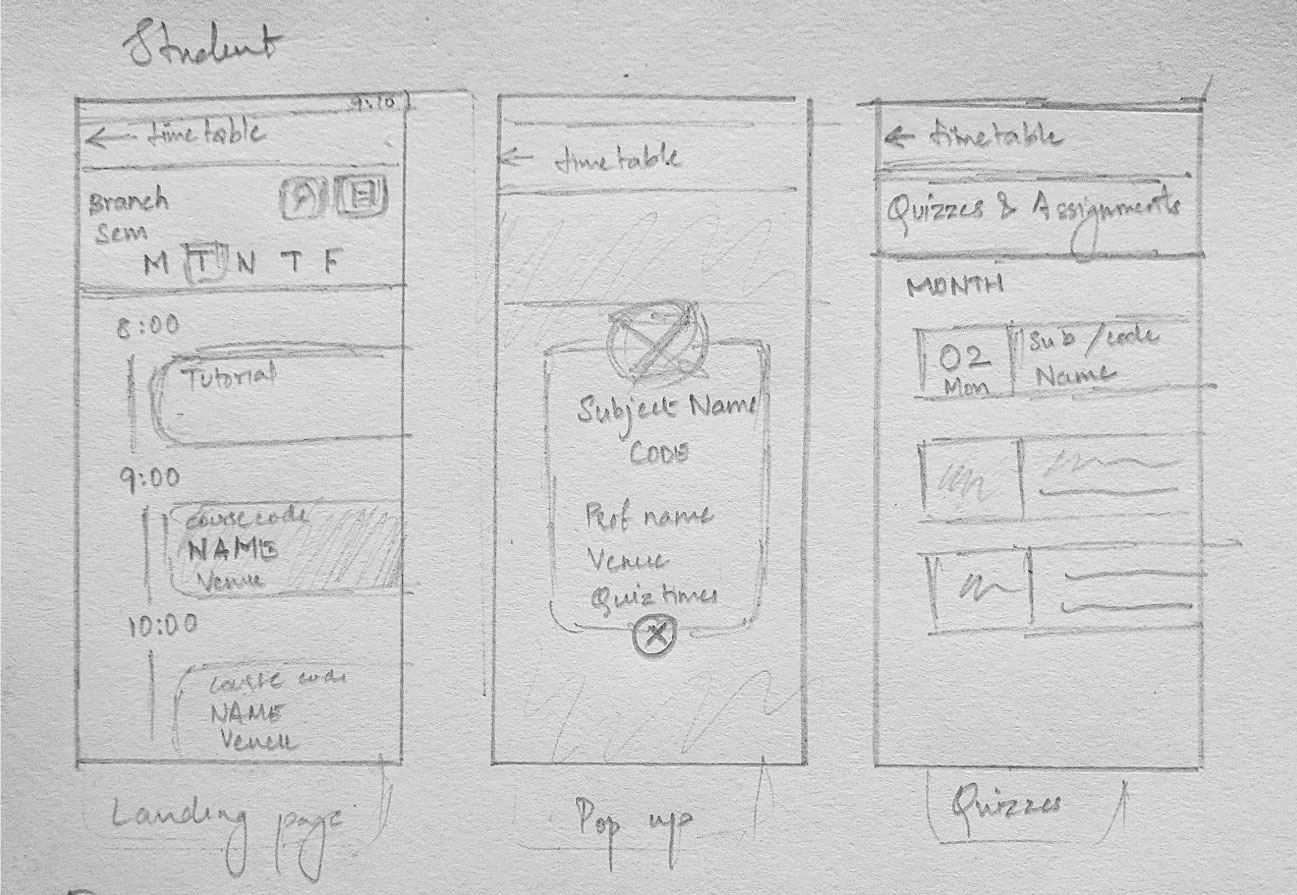 Student
9:10
← timetable
Branch
Sem
M T W T F
8:00
Tutorial
9:00
course code
NAME
Venue
10:00
course code
NAME
Venue
Landing page
← timetable
Subject Name
CODE
Prof name
Venue
Quiz times
Pop up
← timetable
Quizzes & Assignments
MONTH
02
Mon
Sub/code
Name
Quizzes